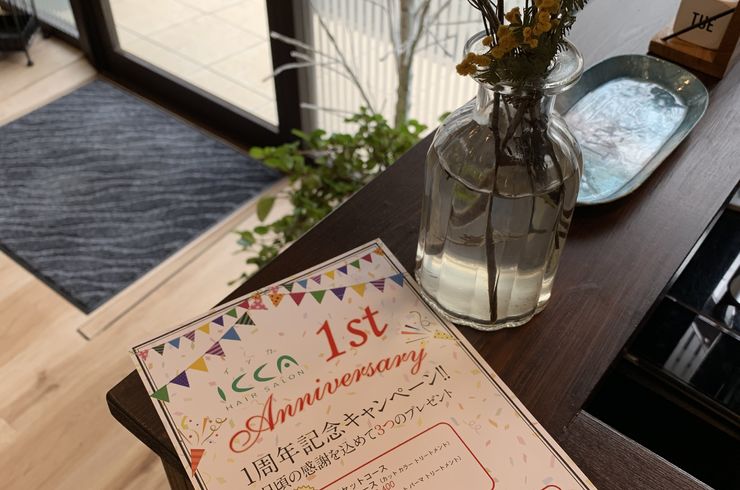 TUE
イッカ
ICCA
HAIR SALON
1st
Anniversary
1周年記念キャンペーン!!
日頃の感謝を込めて3つのプレゼント
ケットコース
ース (カットカラートリートメント)
400
パーマトリートメント)